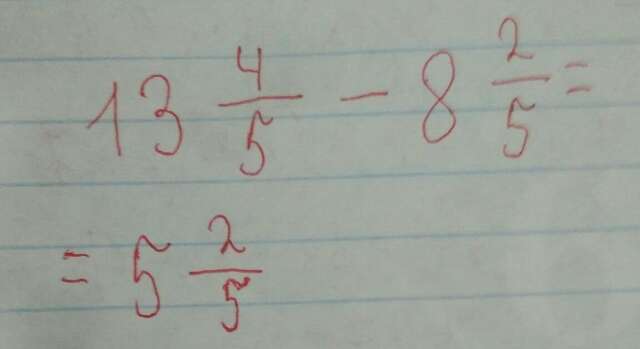 13 4/5 - 8 2/5 =
= 5 2/5